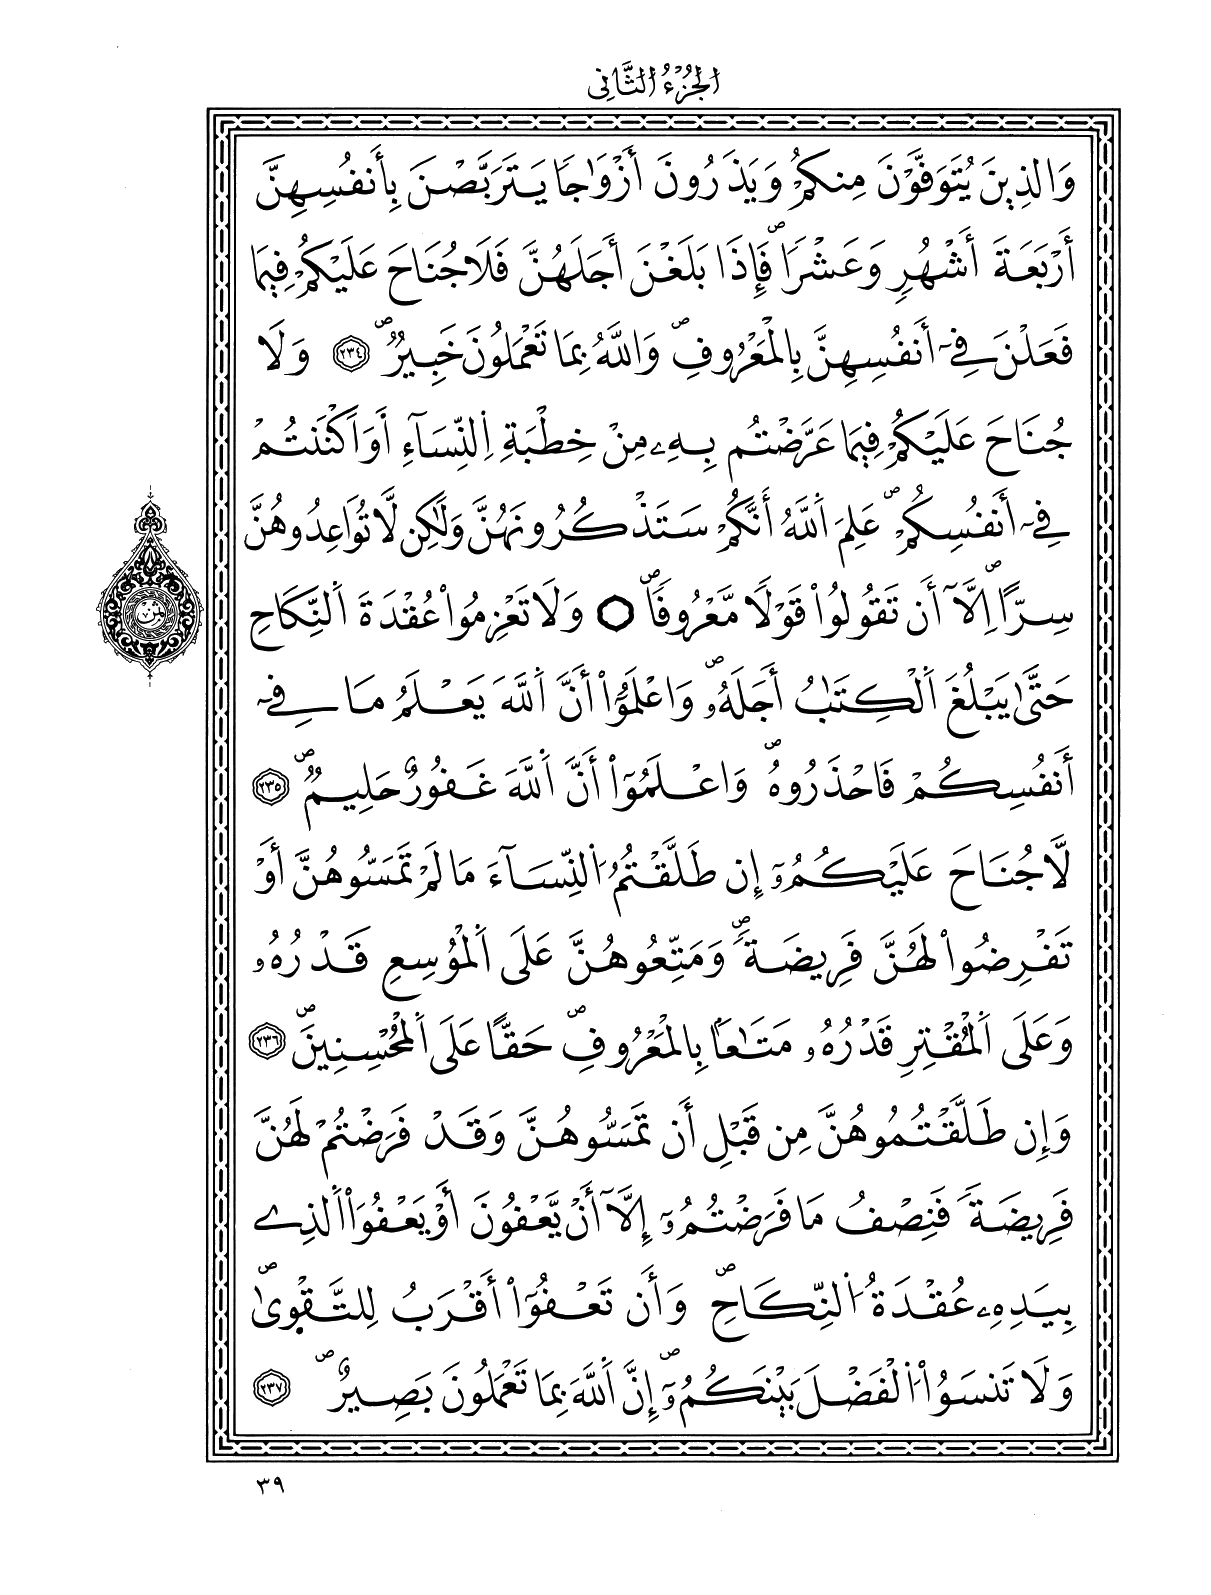 الجُزْءُ الثَّانِي
وَالذِينَ يُتَوَفَّوْنَ مِنكُمْ وَيَذَرُونَ أَزْوَٰجاٗ يَتَرَبَّصْنَ بِأَنفُسِهِنَّ
أَرْبَعَةَ أَشْهُرٖ وَعَشْراٗۖ فَإِذَا بَلَغْنَ أَجَلَهُنَّ فَلَا جُنَاحَ عَلَيْكُمْ فِيمَا
فَعَلْنَ فِےٓ أَنفُسِهِنَّ بِالْمَعْرُوفِۖ وَاللَّهُ بِمَا تَعْمَلُونَ خَبِيرٞۖ ٢٣٤ وَلَا
جُنَاحَ عَلَيْكُمْ فِيمَا عَرَّضْتُم بِهِۦ مِنْ خِطْبَةِ اِ۬لنِّسَآءِ اَ۬وَ اَكْنَنتُمْ
فِےٓ أَنفُسِكُمْۖ عَلِمَ اَ۬للَّهُ أَنَّكُمْ سَتَذْكُرُونَهُنَّ وَلَٰكِن لَّا تُوَاعِدُوهُنَّ
سِرّاً اِلَّآ أَن تَقُولُواْ قَوْلاٗ مَّعْرُوفاٗۖ وَلَا تَعْزِمُواْ عُقْدَةَ اَ۬لنِّكَاحِ
حَتَّىٰ يَبْلُغَ اَ۬لْكِتَٰبُ أَجَلَهُۥۖ وَاعْلَمُوٓاْ أَنَّ اَ۬للَّهَ يَعْلَمُ مَا فِےٓ
أَنفُسِكُمْ فَاحْذَرُوهُۖ وَاعْلَمُوٓاْ أَنَّ اَ۬للَّهَ غَفُورٌ حَلِيمٞۖ ٢٣٥
لَّا جُنَاحَ عَلَيْكُمُۥٓ إِن طَلَّقْتُمُ اُ۬لنِّسَآءَ مَا لَمْ تَمَسُّوهُنَّ أَوْ
تَفْرِضُواْ لَهُنَّ فَرِيضَةٗۖ وَمَتِّعُوهُنَّ عَلَى اَ۬لْمُوسِعِ قَدْرُهُۥ
وَعَلَى اَ۬لْمُقْتِرِ قَدْرُهُۥ مَتَٰعاَۢ بِالْمَعْرُوفِۖ حَقّاً عَلَى اَ۬لْمُحْسِنِينَۖ ٢٣٦
وَإِن طَلَّقْتُمُوهُنَّ مِن قَبْلِ أَن تَمَسُّوهُنَّ وَقَدْ فَرَضْتُمْ لَهُنَّ
فَرِيضَةٗ فَنِصْفُ مَا فَرَضْتُمُۥٓ إِلَّآ أَنْ يَّعْفُونَ أَوْ يَعْفُوَاْ اَ۬لذِے
بِيَدِهِۦ عُقْدَةُ اُ۬لنِّكَاحِۖ وَأَن تَعْفُوٓاْ أَقْرَبُ لِلتَّقْوٜىٰۖ
وَلَا تَنسَوُاْ اُ۬لْفَضْلَ بَيْنَكُمُۥٓۖ إِنَّ اَ۬للَّهَ بِمَا تَعْمَلُونَ بَصِيرٌۖ ٢٣٧
٣٩